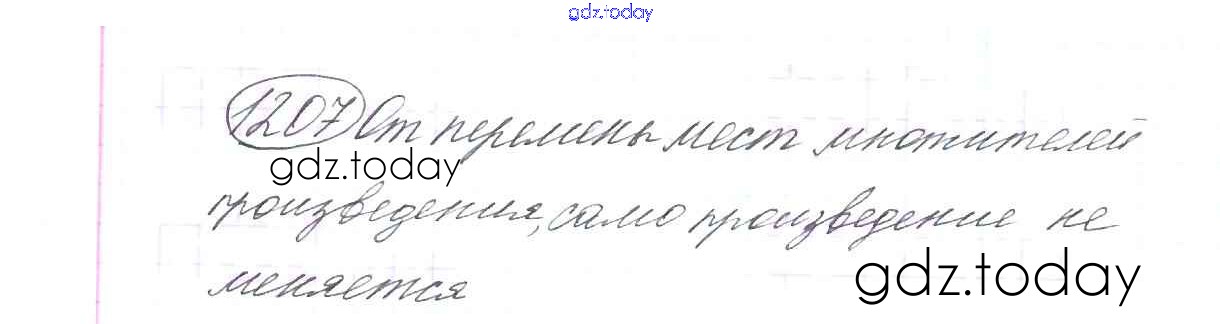 gdz.today
1207 От перемены мест множителей
gdz.today
произведения, само произведение не
gdz.today
меняется